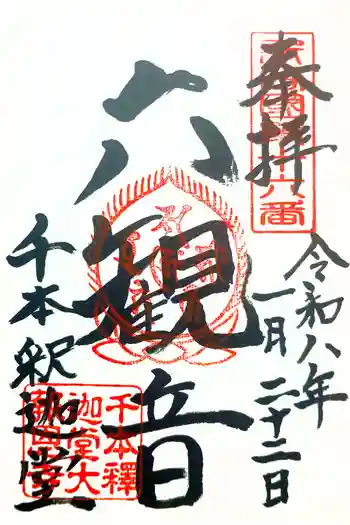 奉拝
令和八年
一月二十二日
六観音
千本釈迦堂
千本釋
迦堂大